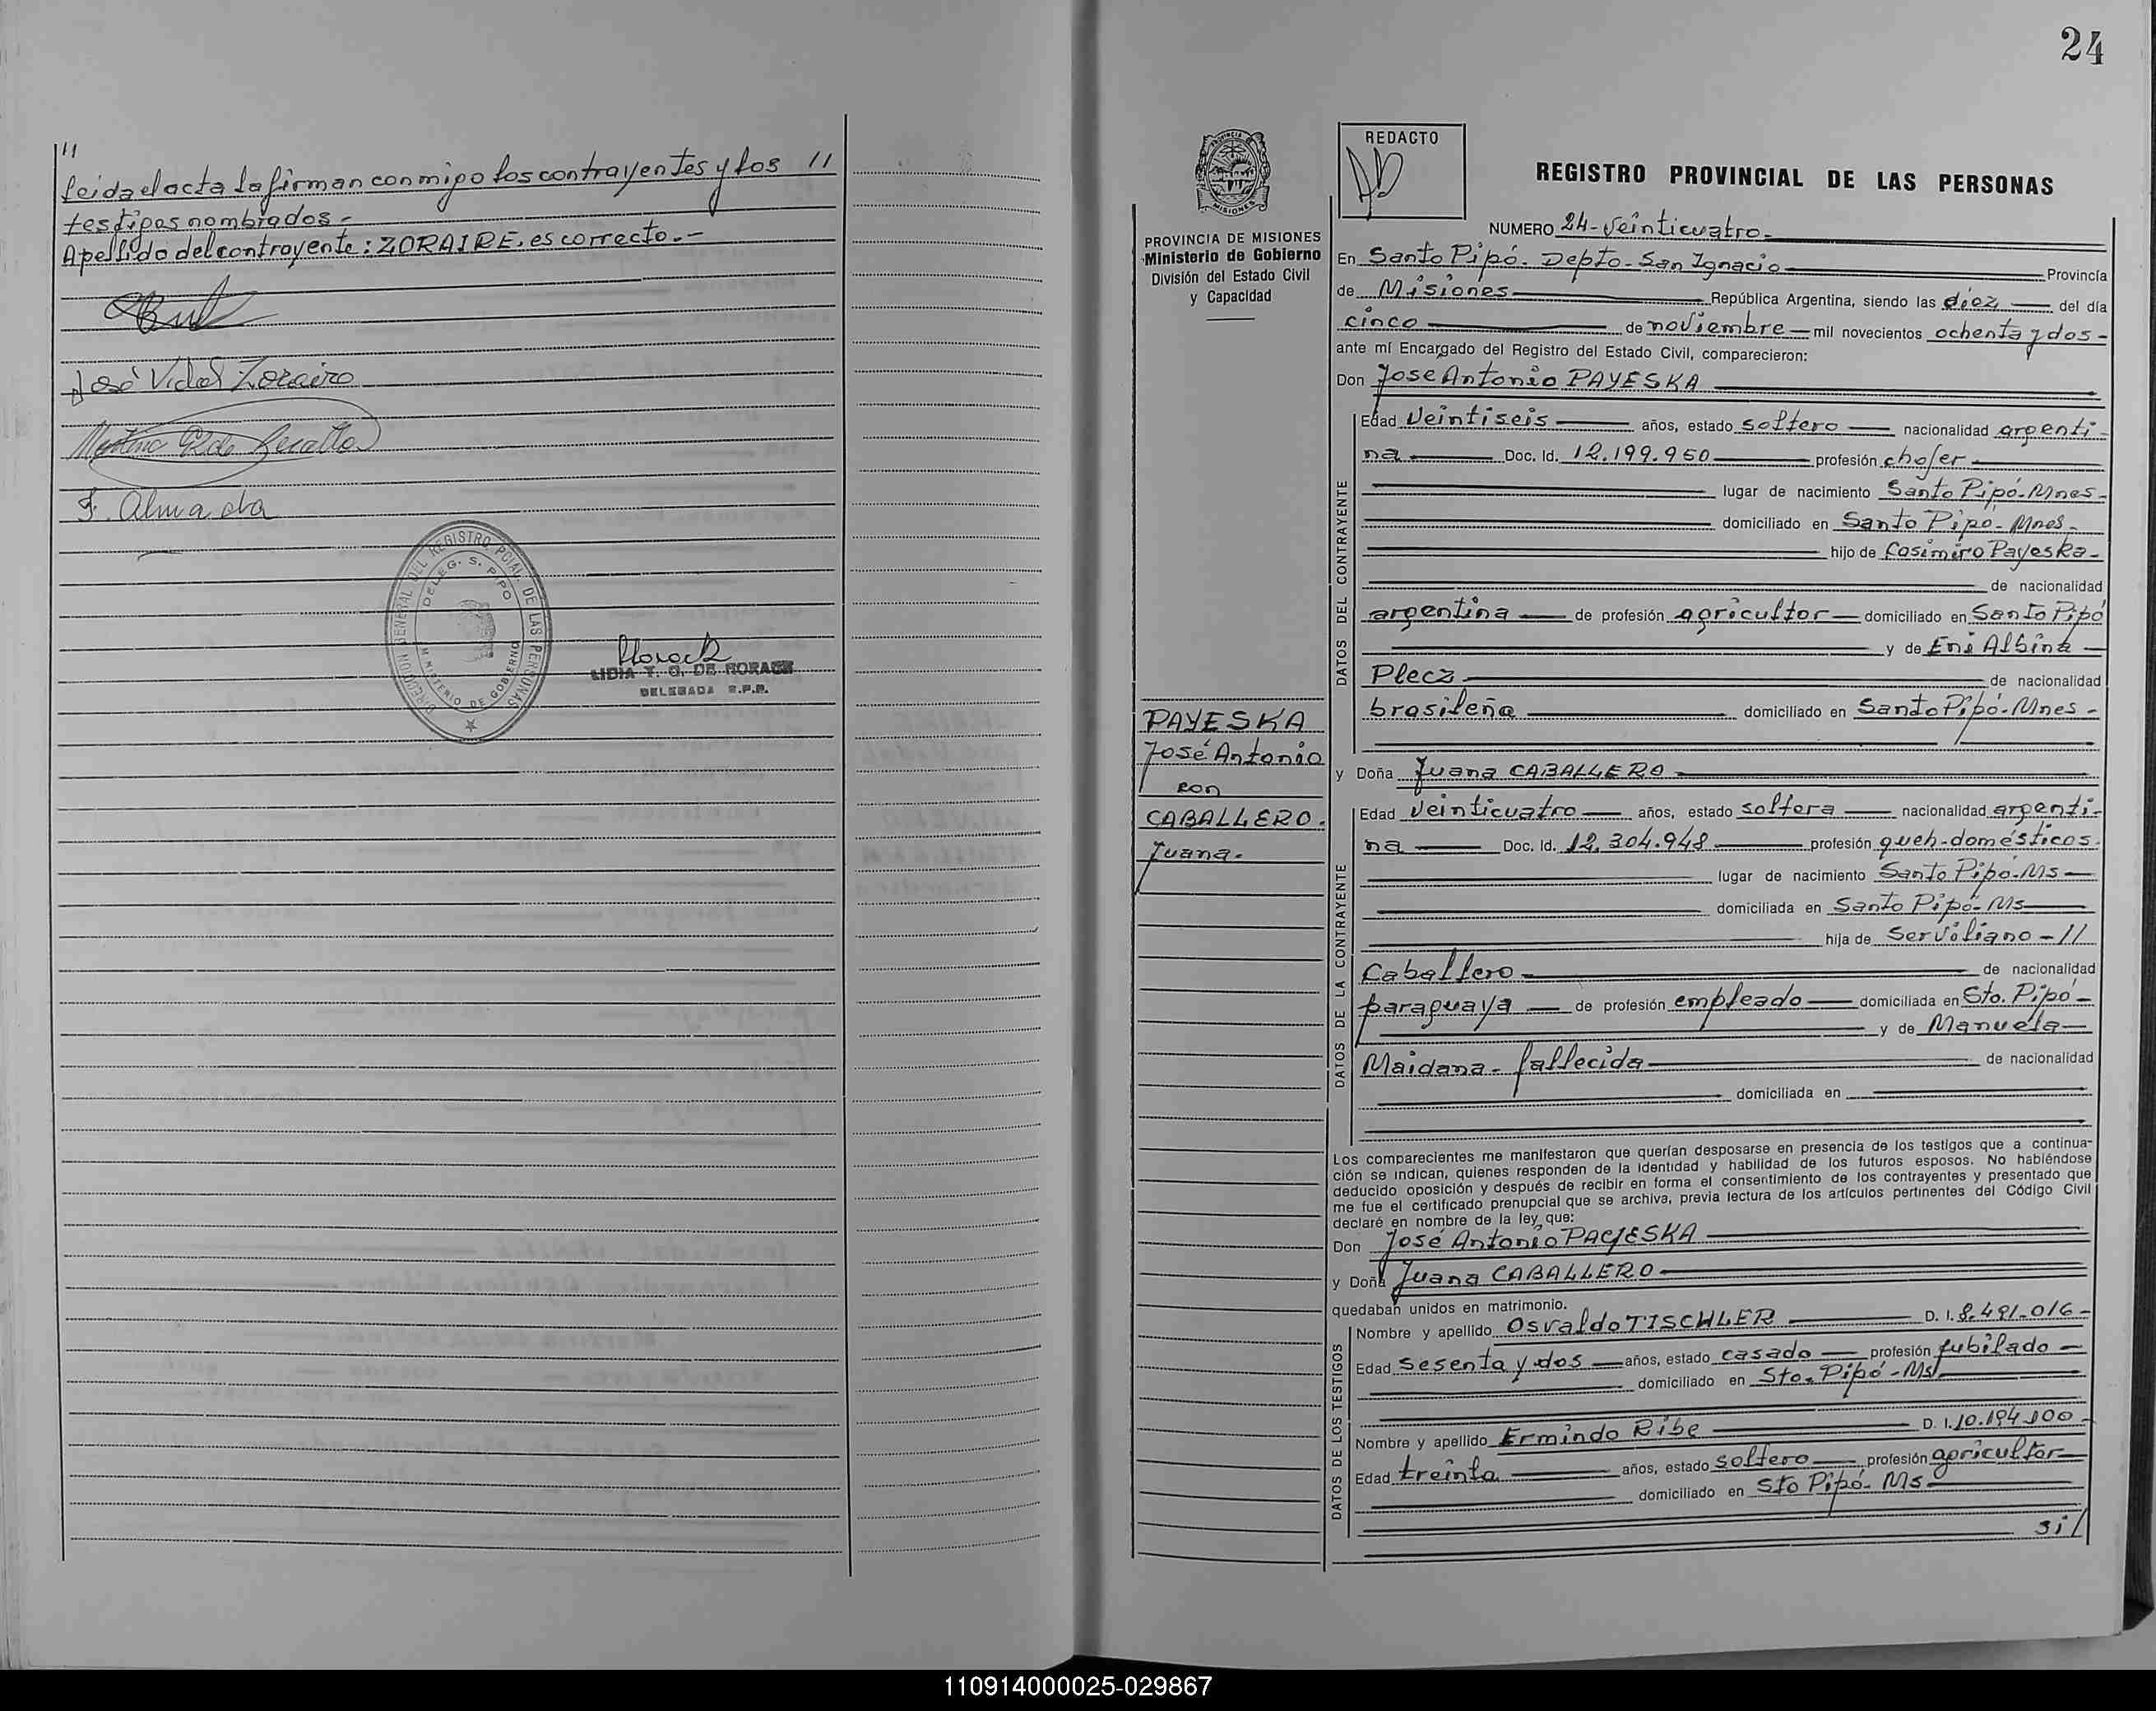 "
leida el acta la firman conmigo los contrayentes y los //
testigos nombrados-
Apellido del contrayente: ZORAIRE, es correcto.-
José Vidal Zoraire
F. Almada
DIRECCION GENERAL DEL REGISTRO PCIAL. DE LAS PERSONAS
DELEG. S. PIPO
MINISTERIO DE GOBIERNO
LIDIA T. G. DE
DELEGADA R.P.P.
24
REDACTO
PROVINCIA
MISIONES
REGISTRO PROVINCIAL DE LAS PERSONAS
PROVINCIA DE MISIONES
Ministerio de Gobierno
División del Estado Civil
y Capacidad
PAYESKA
José Antonio
con
CABALLERO.
Juana.
NUMERO 24-Veinticuatro-
En Santo Pipó. Depto-San Ignacio Provincia
de Misiones República Argentina, siendo las diez del día
cinco de noviembre mil novecientos ochenta y dos-
ante mí Encargado del Registro del Estado Civil, comparecieron:
Don Jose Antonio PAYESKA
DATOS DEL CONTRAYENTE
Edad Veintiseis años, estado soltero nacionalidad argenti-
na Doc. Id. 12.199.950 profesión chofer
lugar de nacimiento Santo Pipó-Mnes-
domiciliado en Santo Pipo-Mnes-
hijo de Casimiro Payeska-
de nacionalidad
argentina de profesión agricultor domiciliado en Santo Pipó
y de Eni Albina
Plecz de nacionalidad
brasileña domiciliado en Santo Pipó-Mnes-
y Doña Juana CABALLERO
DATOS DE LA CONTRAYENTE
Edad Veinticuatro años, estado soltera nacionalidad argenti-
na Doc. Id. 12.304.948 profesión queh-domésticos.
lugar de nacimiento Santo Pipó-Ms
domiciliada en Santo Pipó-Ms
hija de Serviliano-//
Caballero de nacionalidad
paraguaya de profesión empleado domiciliada en Sto. Pipó-
y de Manuela
Maidana-fallecida de nacionalidad
domiciliada en
Los comparecientes me manifestaron que querían desposarse en presencia de los testigos que a continua-
ción se indican, quienes responden de la identidad y habilidad de los futuros esposos. No habiéndose
deducido oposición y después de recibir en forma el consentimiento de los contrayentes y presentado que
me fue el certificado prenupcial que se archiva, previa lectura de los artículos pertinentes del Código Civil
declaré en nombre de la ley que:
Don José Antonio PAYESKA
y Doña Juana CABALLERO
quedaban unidos en matrimonio.
DATOS DE LOS TESTIGOS
Nombre y apellido Osvaldo TISCHLER D. I. 8.491-016-
Edad Sesenta y dos años, estado casado profesión jubilado
domiciliado en Sto. Pipó-Ms
Nombre y apellido Ermindo Ribe D. I. 10.194.100-
Edad treinta años, estado soltero profesión agricultor
domiciliado en Sto Pipó-Ms
si/
110914000025-029867